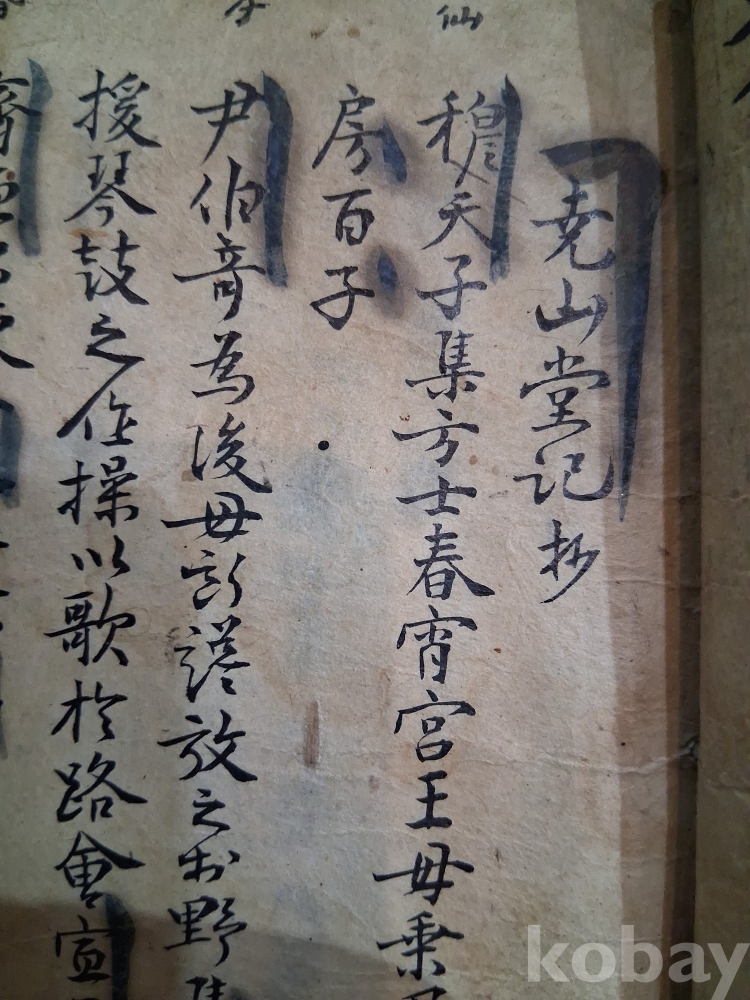 仙
堯山堂記抄
穆天子集方士春宵宮王母乘
房百子
尹伯奇為後母所譖放之於野
援琴鼓之作操以歌於路會宣
kobay